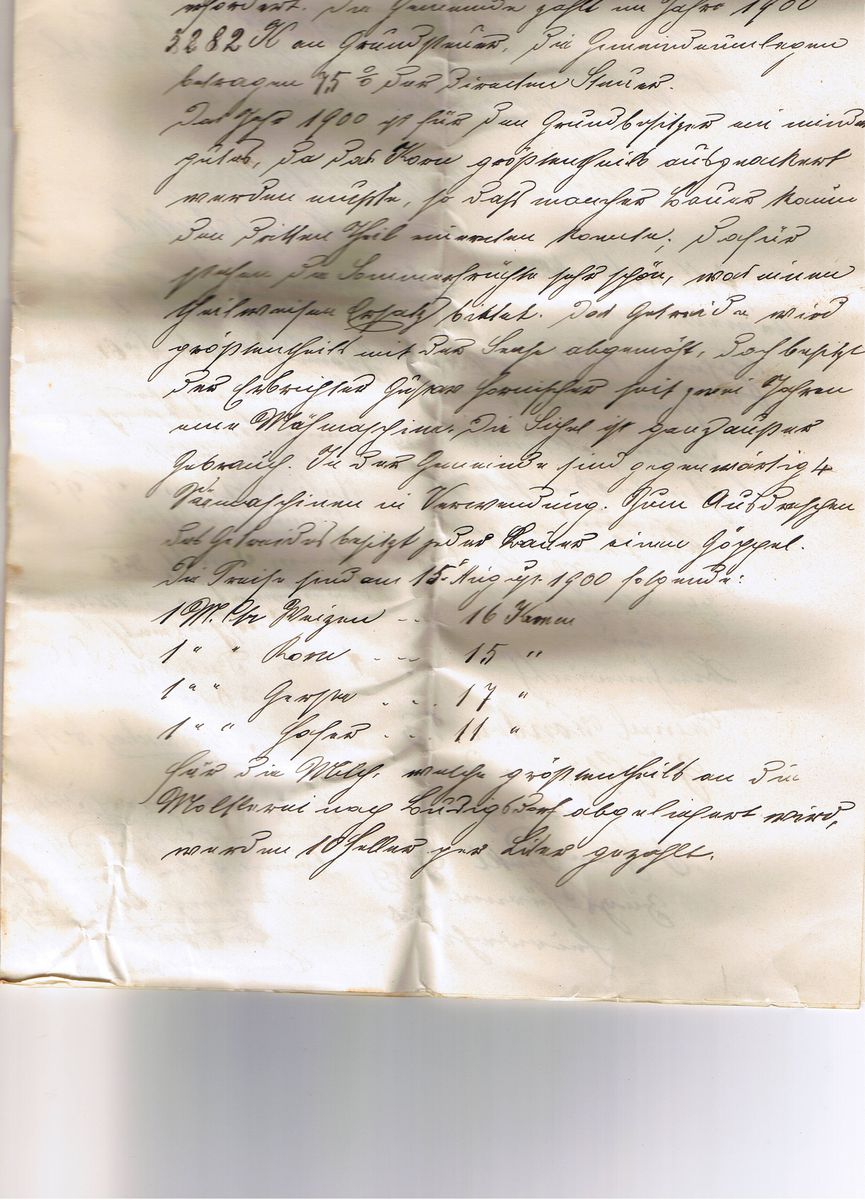 erfordert. Die Gemeinde zahlt im Jahre 1900
3282 K an Grundsteuer, die Gemeindeumlagen
betragen 75 % der directen Steuer.
Das Jahr 1900 ist für den Grundbesitzer ein minder
gutes, da das Korn größtentheils ausgeackert
werden mußte, so daß mancher Bauer kaum
den dritten Theil einernten konnte; dafür
stehen die Sommerfrüchte sehr schön, was einen
theilweisen Ersatz bittet. Das Getreide wird
größtentheils mit der Sense abgemäht, doch besitzt
der Erbrichter Gustav Hornischer seit zwei Jahren
eine Mähmaschine. Die Sichel ist ganz außer
Gebrauch. In der Gemeinde sind gegenwärtig 4
Säemaschinen in Verwendung. Zum Ausdreschen
des Getreides besitzt jeder Bauer einen Göppel.
Die Preise sind am 15. August 1900 folgende:
1 M. Ctr Weizen . . 16 Kronen
1 " " Korn . . . 15 "
1 " " Gerste . . . 17 "
1 " " Hafer . . . 11 "
Für die Milch, welche größtentheils an die
Molkerei nach Budigsdorf abgeliefert wird,
werden 10 Heller per Liter gezahlt.